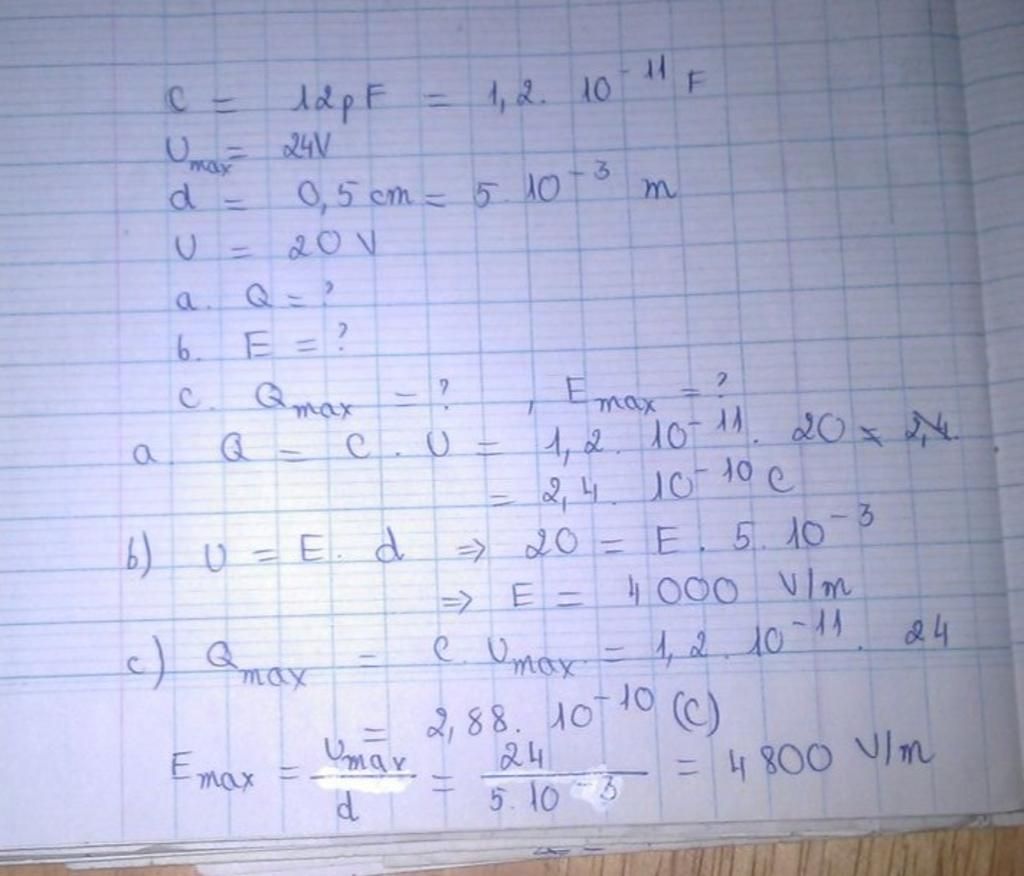 C = 12pF = 1,2. 10⁻¹¹ F
Umax = 24V
d = 0,5 cm = 5. 10⁻³ m
U = 20 V
a. Q = ?
b. E = ?
c. Qmax = ? , Emax = ?
a. Q = C . U = 1,2. 10⁻¹¹. 20
= 2,4. 10⁻¹⁰ C
b) U = E. d ⇒ 20 = E. 5. 10⁻³
⇒ E = 4000 V/m
c) Qmax = C. Umax = 1,2. 10⁻¹¹. 24
= 2,88. 10⁻¹⁰ (C)
Emax = Umax/d = 24/5.10⁻³ = 4800 V/m